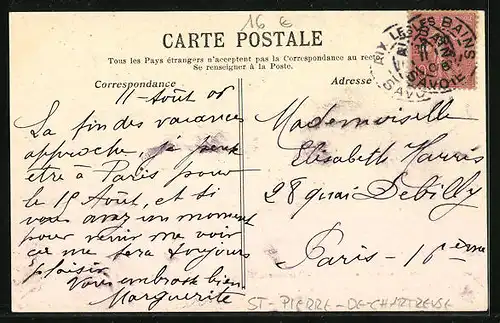 16 €
CARTE POSTALE
Tous les Pays étrangers n'acceptent pas la Correspondance au recto
Se renseigner à la Poste.
Correspondance
Adresse
AIX LES BAINS
SAVOIE
11 Août 06
La fin des vacances
approche, je pense
être à Paris pour
le 15 Août, et si
vous avez un moment
pour venir me voir
ce me sera toujours
plaisir
Vous embrasse bien
Marguerite
Mademoiselle
Elisabeth Harris
28 quai Debilly
Paris - 16ème
ST-PIERRE-DE-CHARTREUSE